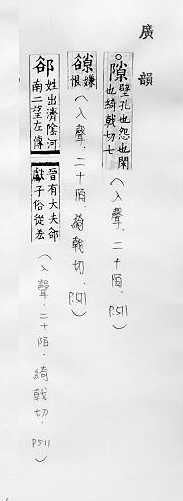 廣韻
隙 壁孔也怨也閑也綺戟切七（入聲．二十陌．P.511）
嫌恨（入聲．二十陌．綺戟切．P.511）
郤 姓出濟陰河南二望左傳晉有大夫郤獻子俗從（入聲．二十陌．綺戟切．P511）